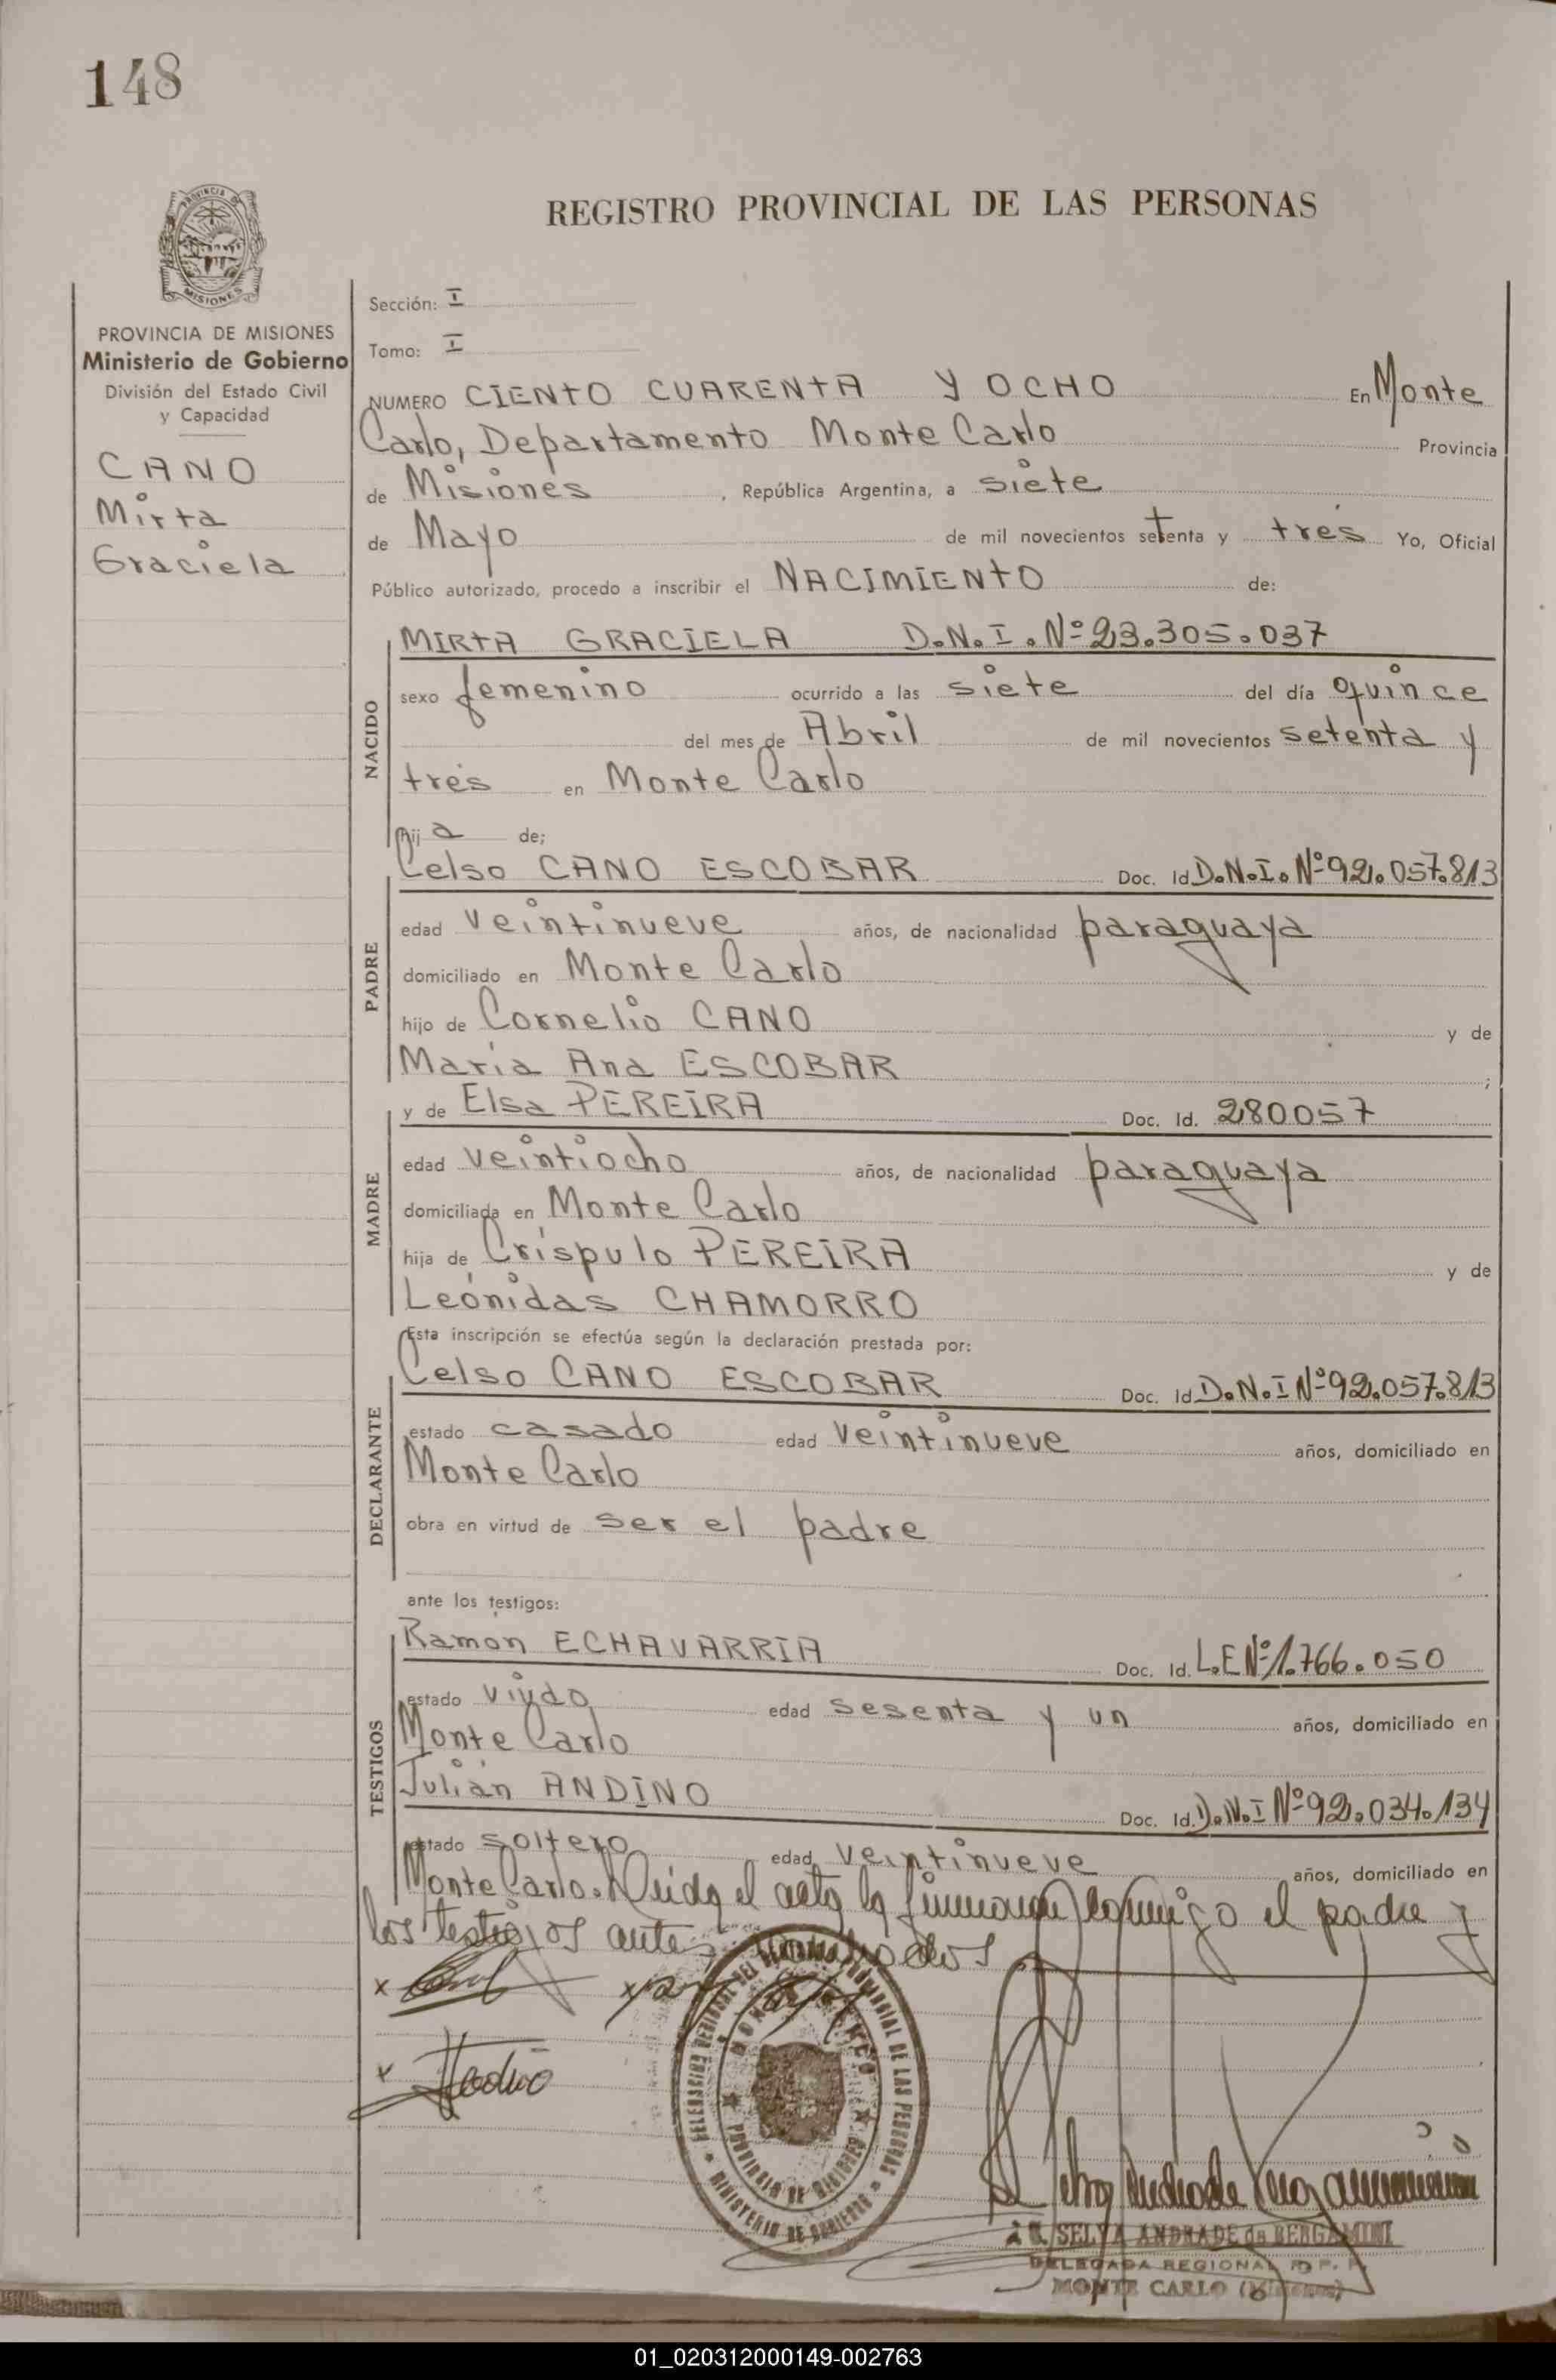 148
REGISTRO PROVINCIAL DE LAS PERSONAS
PROVINCIA DE MISIONES
Ministerio de Gobierno
División del Estado Civil
y Capacidad
CANO
Mirta
Graciela
Sección: I
Tomo: I
NUMERO CIENTO CUARENTA Y OCHO En Monte
Carlo, Departamento Monte Carlo Provincia
de Misiones, República Argentina, a siete
de Mayo de mil novecientos setenta y tres Yo, Oficial
Público autorizado, procedo a inscribir el NACIMIENTO de:
NACIDO
MIRTA GRACIELA D.N.I. Nº 23.305.037
sexo femenino ocurrido a las siete del día quince
del mes de Abril de mil novecientos setenta y
tres en Monte Carlo
hija de;
PADRE
Celso CANO ESCOBAR Doc. Id D.N.I. Nº 92.057.813
edad veintinueve años, de nacionalidad paraguaya
domiciliado en Monte Carlo
hijo de Cornelio CANO y de
María Ana ESCOBAR ;
MADRE
y de Elsa PEREIRA Doc. Id. 280057
edad veintiocho años, de nacionalidad paraguaya
domiciliada en Monte Carlo
hija de Críspulo PEREIRA y de
Leónidas CHAMORRO
Esta inscripción se efectúa según la declaración prestada por:
DECLARANTE
Celso CANO ESCOBAR Doc. Id D.N.I Nº 92.057.813
estado casado edad veintinueve años, domiciliado en
Monte Carlo
obra en virtud de ser el padre
ante los testigos:
TESTIGOS
Ramón ECHAVARRIA Doc. Id. L.E Nº 1.766.050
estado viudo edad sesenta y un años, domiciliado en
Monte Carlo
Julián ANDINO Doc. Id. D.N.I Nº 92.034.134
estado soltero edad veintinueve años, domiciliado en
Monte Carlo. Leida el acta la firman conmigo el padre y
los testigos antes nombrados
PROVINCIA DE MISIONES
MINISTERIO DE GOBIERNO
SELVA ANDRADE de BERGAMINI
DELEGADA REGIONAL R. P. P.
MONTE CARLO (Misiones)
01_020312000149-002763